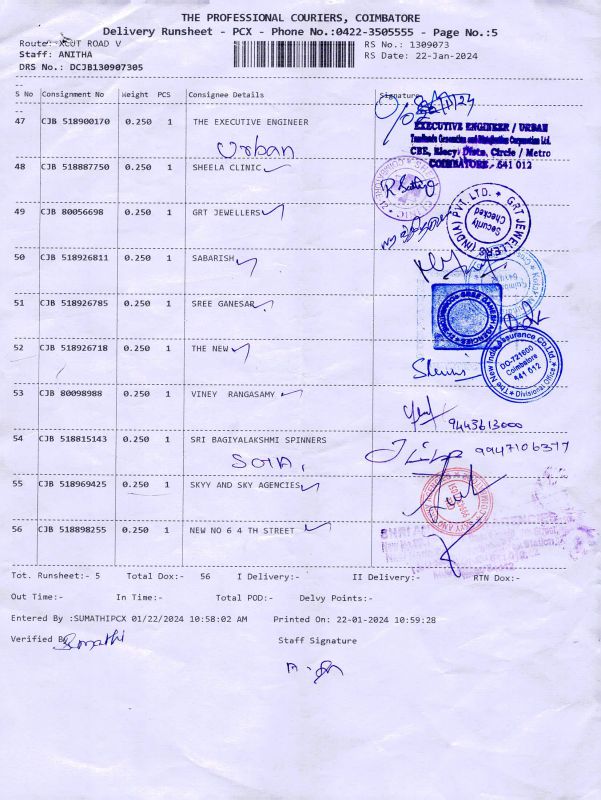 THE PROFESSIONAL COURIERS, COIMBATORE
Delivery Runsheet - PCX - Phone No.:0422-3505555 - Page No.:5
Route: XCUT ROAD V RS No.: 1309073
Staff: ANITHA RS Date: 22-Jan-2024
DRS No.: DCJB130907305
S No Consignment No Weight PCS Consignee Details Signature
47 CJB 518900170 0.250 1 THE EXECUTIVE ENGINEER
Urban
EXECUTIVE ENGINEER / URBAN
Tamilnadu Generation and Distribution Corporation Ltd.
CBE, Elecy. Distn. Circle / Metro
COIMBATORE - 641 012
48 CJB 518887750 0.250 1 SHEELA CLINIC
49 CJB 80056698 0.250 1 GRT JEWELLERS
GRT JEWELLERS (INDIA) PVT. LTD.
Security Checked
50 CJB 518926811 0.250 1 SABARISH
51 CJB 518926785 0.250 1 SREE GANESAR
SREE GANESH AGENCIES
52 CJB 518926718 0.250 1 THE NEW
The New India Assurance Co. Ltd.
DO-721600
Coimbatore
641 012
Divisional Office
53 CJB 80098988 0.250 1 VINEY RANGASAMY
9443613000
54 CJB 518815143 0.250 1 SRI BAGIYALAKSHMI SPINNERS
9947106377
55 CJB 518969425 0.250 1 SKYY AND SKY AGENCIES
56 CJB 518898255 0.250 1 NEW NO 6 4 TH STREET
Tot. Runsheet:- 5 Total Dox:- 56 I Delivery:- II Delivery:- RTN Dox:-
Out Time:- In Time:- Total POD:- Delvy Points:-
Entered By :SUMATHIPCX 01/22/2024 10:58:02 AM Printed On: 22-01-2024 10:59:28
Verified By Staff Signature